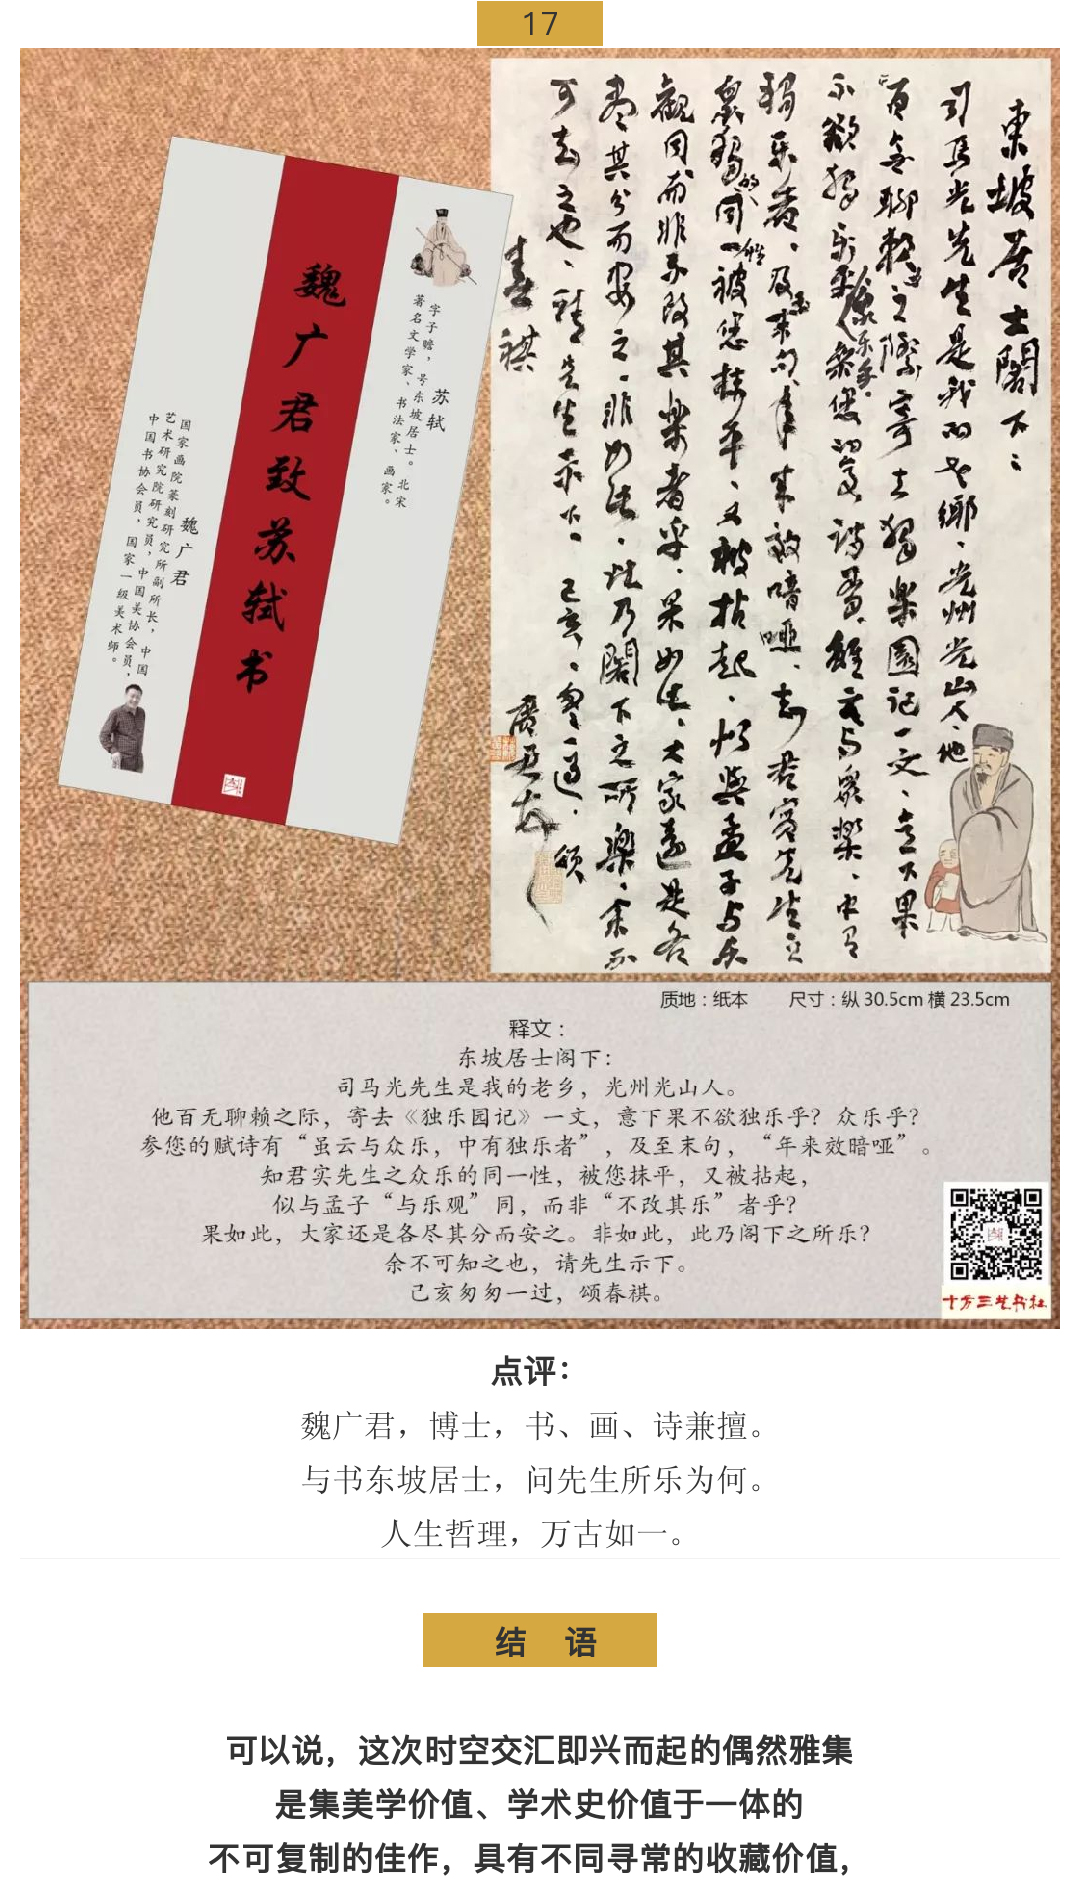 17
東坡居士閣下：
司馬光先生是我的老鄉、光州光山人、他
百無聊賴之際寄去獨樂園記一文、意下果
不欲獨樂樂
衆樂乎
參您的賦詩有、雖云与衆樂、中有
獨樂者、及至末句、年來效喑啞、知君實先生之
衆樂的同一性被您抹平、又被拈起、似與孟子与樂
觀同而非不改其樂者乎、果如此、大家還是各
盡其分而安之、非如此、此乃閣下之所樂、余不
可知之也、請先生示下、己亥、匆匆一過、頌
春祺
廣君
魏广君致苏轼书
苏轼
字子瞻，号东坡居士。北宋
著名文学家、书法家、画家。
魏广君
国家画院篆刻研究所副所长，中国
艺术研究院研究员，中国美协会员，
中国书协会员，国家一级美术师。
质地：纸本 尺寸：纵 30.5cm 横 23.5cm
释文：
东坡居士阁下：
司马光先生是我的老乡，光州光山人。
他百无聊赖之际，寄去《独乐园记》一文，意下果不欲独乐乎？众乐乎？
参您的赋诗有“虽云与众乐，中有独乐者”，及至末句，“年来效暗哑”。
知君实先生之众乐的同一性，被您抹平，又被拈起，
似与孟子“与乐观”同，而非“不改其乐”者乎？
果如此，大家还是各尽其分而安之。非如此，此乃阁下之所乐？
余不可知之也，请先生示下。
己亥匆匆一过，颂春祺。
十方三艺书社
点评：
魏广君，博士，书、画、诗兼擅。
与书东坡居士，问先生所乐为何。
人生哲理，万古如一。
结 语
可以说，这次时空交汇即兴而起的偶然雅集
是集美学价值、学术史价值于一体的
不可复制的佳作，具有不同寻常的收藏价值，